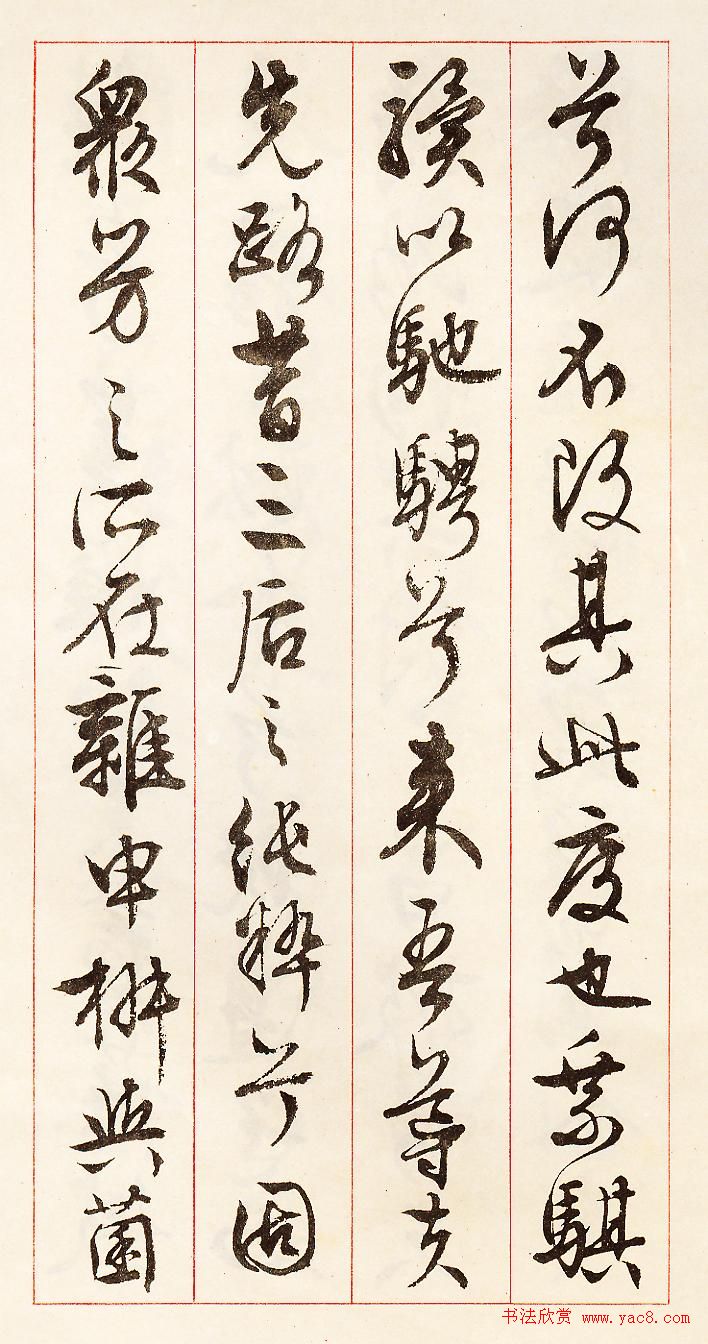 兮何不改其此度也乘騏
驥以馳騁兮來吾導夫
先路昔三后之純粹兮固
衆芳之所在雜申椒與菌
书法欣赏 www.yac8.com